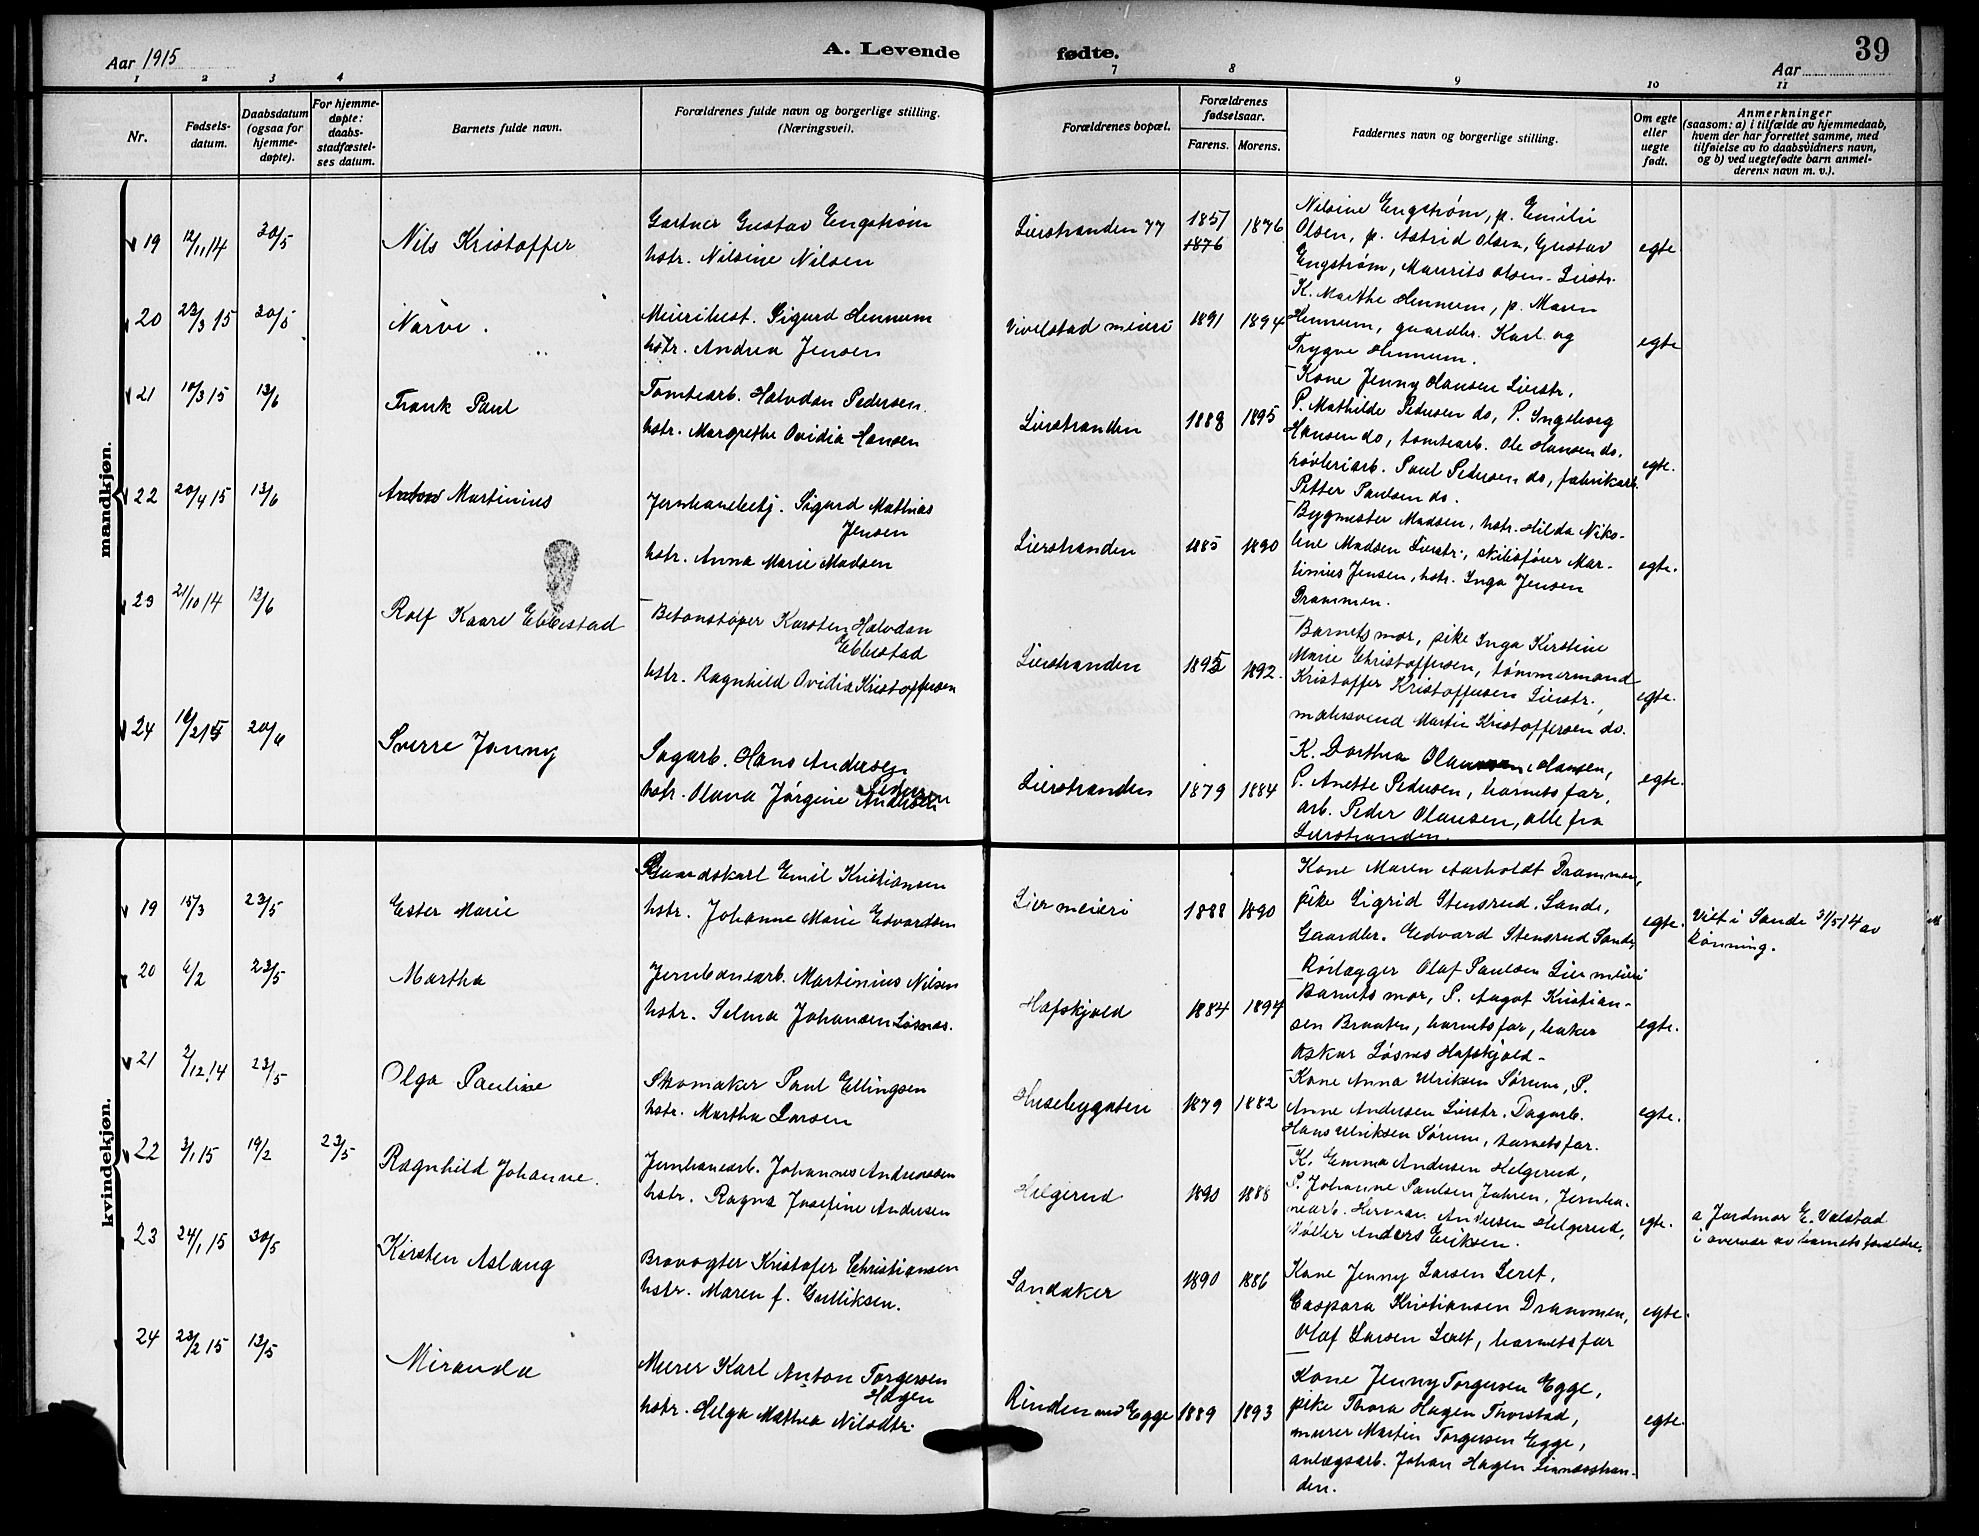 Aar 1915
A. Levende
fødte.
39
Aar
1 2 3 4 7 8 9 10 11
Nr.
Fødsels-
datum.
Daabsdatum
(ogsaa for
hjemme-
døpte).
For hjemme-
døpte:
daabs-
stadfæstel-
ses datum.
Barnets fulde navn.
Forældrenes fulde navn og borgerlige stilling.
(Næringsvei).
Forældrenes bopæl.
Forældrenes
fødselsaar.
Farens. Morens.
Faddernes navn og borgerlige stilling.
Om egte
eller
uegte
født.
Anmerkninger
(saasom: a) i tilfælde av hjemmedaab,
hvem der har forrettet samme, med
tilføielse av to daabsvidners navn,
og b) ved uegtefødte barn anmel-
derens navn m. v.).
mandkjøn.
19 12/11 14 30/5 Nils Kristoffer
Gartner Gustav Engstrøm
hstr. Nilsine Nilsen
Lierstranden 77 1851 1876 1876
Nilsine Engstrøm, p. Emilie
Olsen, p. Astrid Olsen, Gustav
Engstrøm, Maurits Olsen - Lierstr.
egte
20 22/3 15 30/5 Narve.
Meieribest. Sigurd Hennum
hstr. Andrea Jensen
Vivelstad meieri 1891 1894
K. Marthe Hennum, p. Maren
Hennum, gaardbr. Karl og
Trygve Hennum.
egte
21 10/3 15 13/6 Frank Paul
Tomtearb. Halvdan Pedersen.
hstr. Margrethe Ovidia Hansen
Lierstranden 1888 1895
Kone Jenny Hansen Lierstr.
P. Mathilde Pedersen do, P. Ingeborg
Hansen do, tomtearb. Ole Hansen do.
høvleriarb. Paul Pedersen do, fabrikarb.
Petter Paulsen do.
egte.
22 20/4 15 13/6 Anton Martinius
Jernbanebetj. Sigurd Mathias
Jensen
hstr. Anna Marie Madsen
Lierstranden 1885 1890
Bygmester Madsen, hstr. Hilda Niko-
line Madsen Lierstr., skibsfører Mar-
tinius Jensen, hstr. Inga Jensen
Drammen.
egte.
23 21/10 14 13/6 Rolf Kaare Ebbestad
Betonstøper Karsten Halvdan
Ebbestad
hstr. Ragnhild Ovidia Kristoffersen
Lierstranden 1895 1892.
Barnets mor, pike Inga Kirstine
Marie Christoffersen, tømmermand
Kristoffer Kristoffersen Lierstr.,
malersvend Martin Kristoffersen do.
egte.
24 20/6 Sverre Jonny
Sagarb. Hans Andersen
Pedersen
hstr. Olava Jørgine Andersen
Lierstranden 1879 1884
K. Dorthea Hansen,
P. Anette Pedersen, barnets far,
arb. Peder Olausen, alle fra
Lierstranden.
egte.
kvindekjøn.
19 15/3 23/5 Ester Marie
Gaardskarl Emil Kristiansen
hstr. Johanne Marie Edvardsen
Lier meieri 1888 1890
Kone Maren Aarholdt Drammen,
pike Sigrid Stensrud, Sande,
Gaardbr. Edvard Stensrud Sande,
Rørlægger Olaf Paulsen Lier meieri
egte.
Viet i Sande 31/5 14 av
Rønning.
20 6/2 23/5 Martha
Jernbanearb. Martinius Nilsen
hstr. Selma Johansen Løsnæs.
Hafskjold 1884 1894
Barnets mor, P. Aagot Kristian-
sen Braaten, barnets far, baker
Oskar Løsnes Hafskjold -
egte.
21 2/12 14 23/5 Olga Pauline
Skomaker Paul Ellingsen
hstr. Martha Larsen
Husebygaten 1879 1882
Kone Anna Ulriksen Sørum, P.
Anne Andersen Lierstr. Dagarb.
Hans Ulriksen Sørum, barnets far.
egte.
22 3/1 15 19/2 23/5 Ragnhild Johanne.
Jernbanearb. Johannes Andreassen
hstr. Ragna Josefine Andersen
Helgerud 1890 1888
K. Emma Andersen Helgerud,
P. Johanne Paulsen Jahren, Jernba-
nearb. Herman Andersen Helgerud,
Møller Anders Eriksen.
egte.
a Jordmor E. Valstad
i overvær av barnets forældre,
23 24/1 15 30/5 Kirsten Aslaug
Brovogter Kristofer Christiansen
hstr. Maren f. Gulliksen.
Sandaker 1890 1886
Kone Jenny Larsen Leret,
Caspara Kristiansen Drammen,
Olaf Larsen Leret, barnets far
egte.
24 23/2 15 13/5 Miranda
Murer Karl Anton Torgersen
Hagen
hstr. Helga Mathea Nilsdtr.
Rinden ved Egge 1889 1893
Kone Jenny Torgersen Egge,
pike Thora Hagen Thorstad,
murer Martin Torgersen Egge,
anlægsarb. Johan Hagen Linnesstran-
den.
egte.